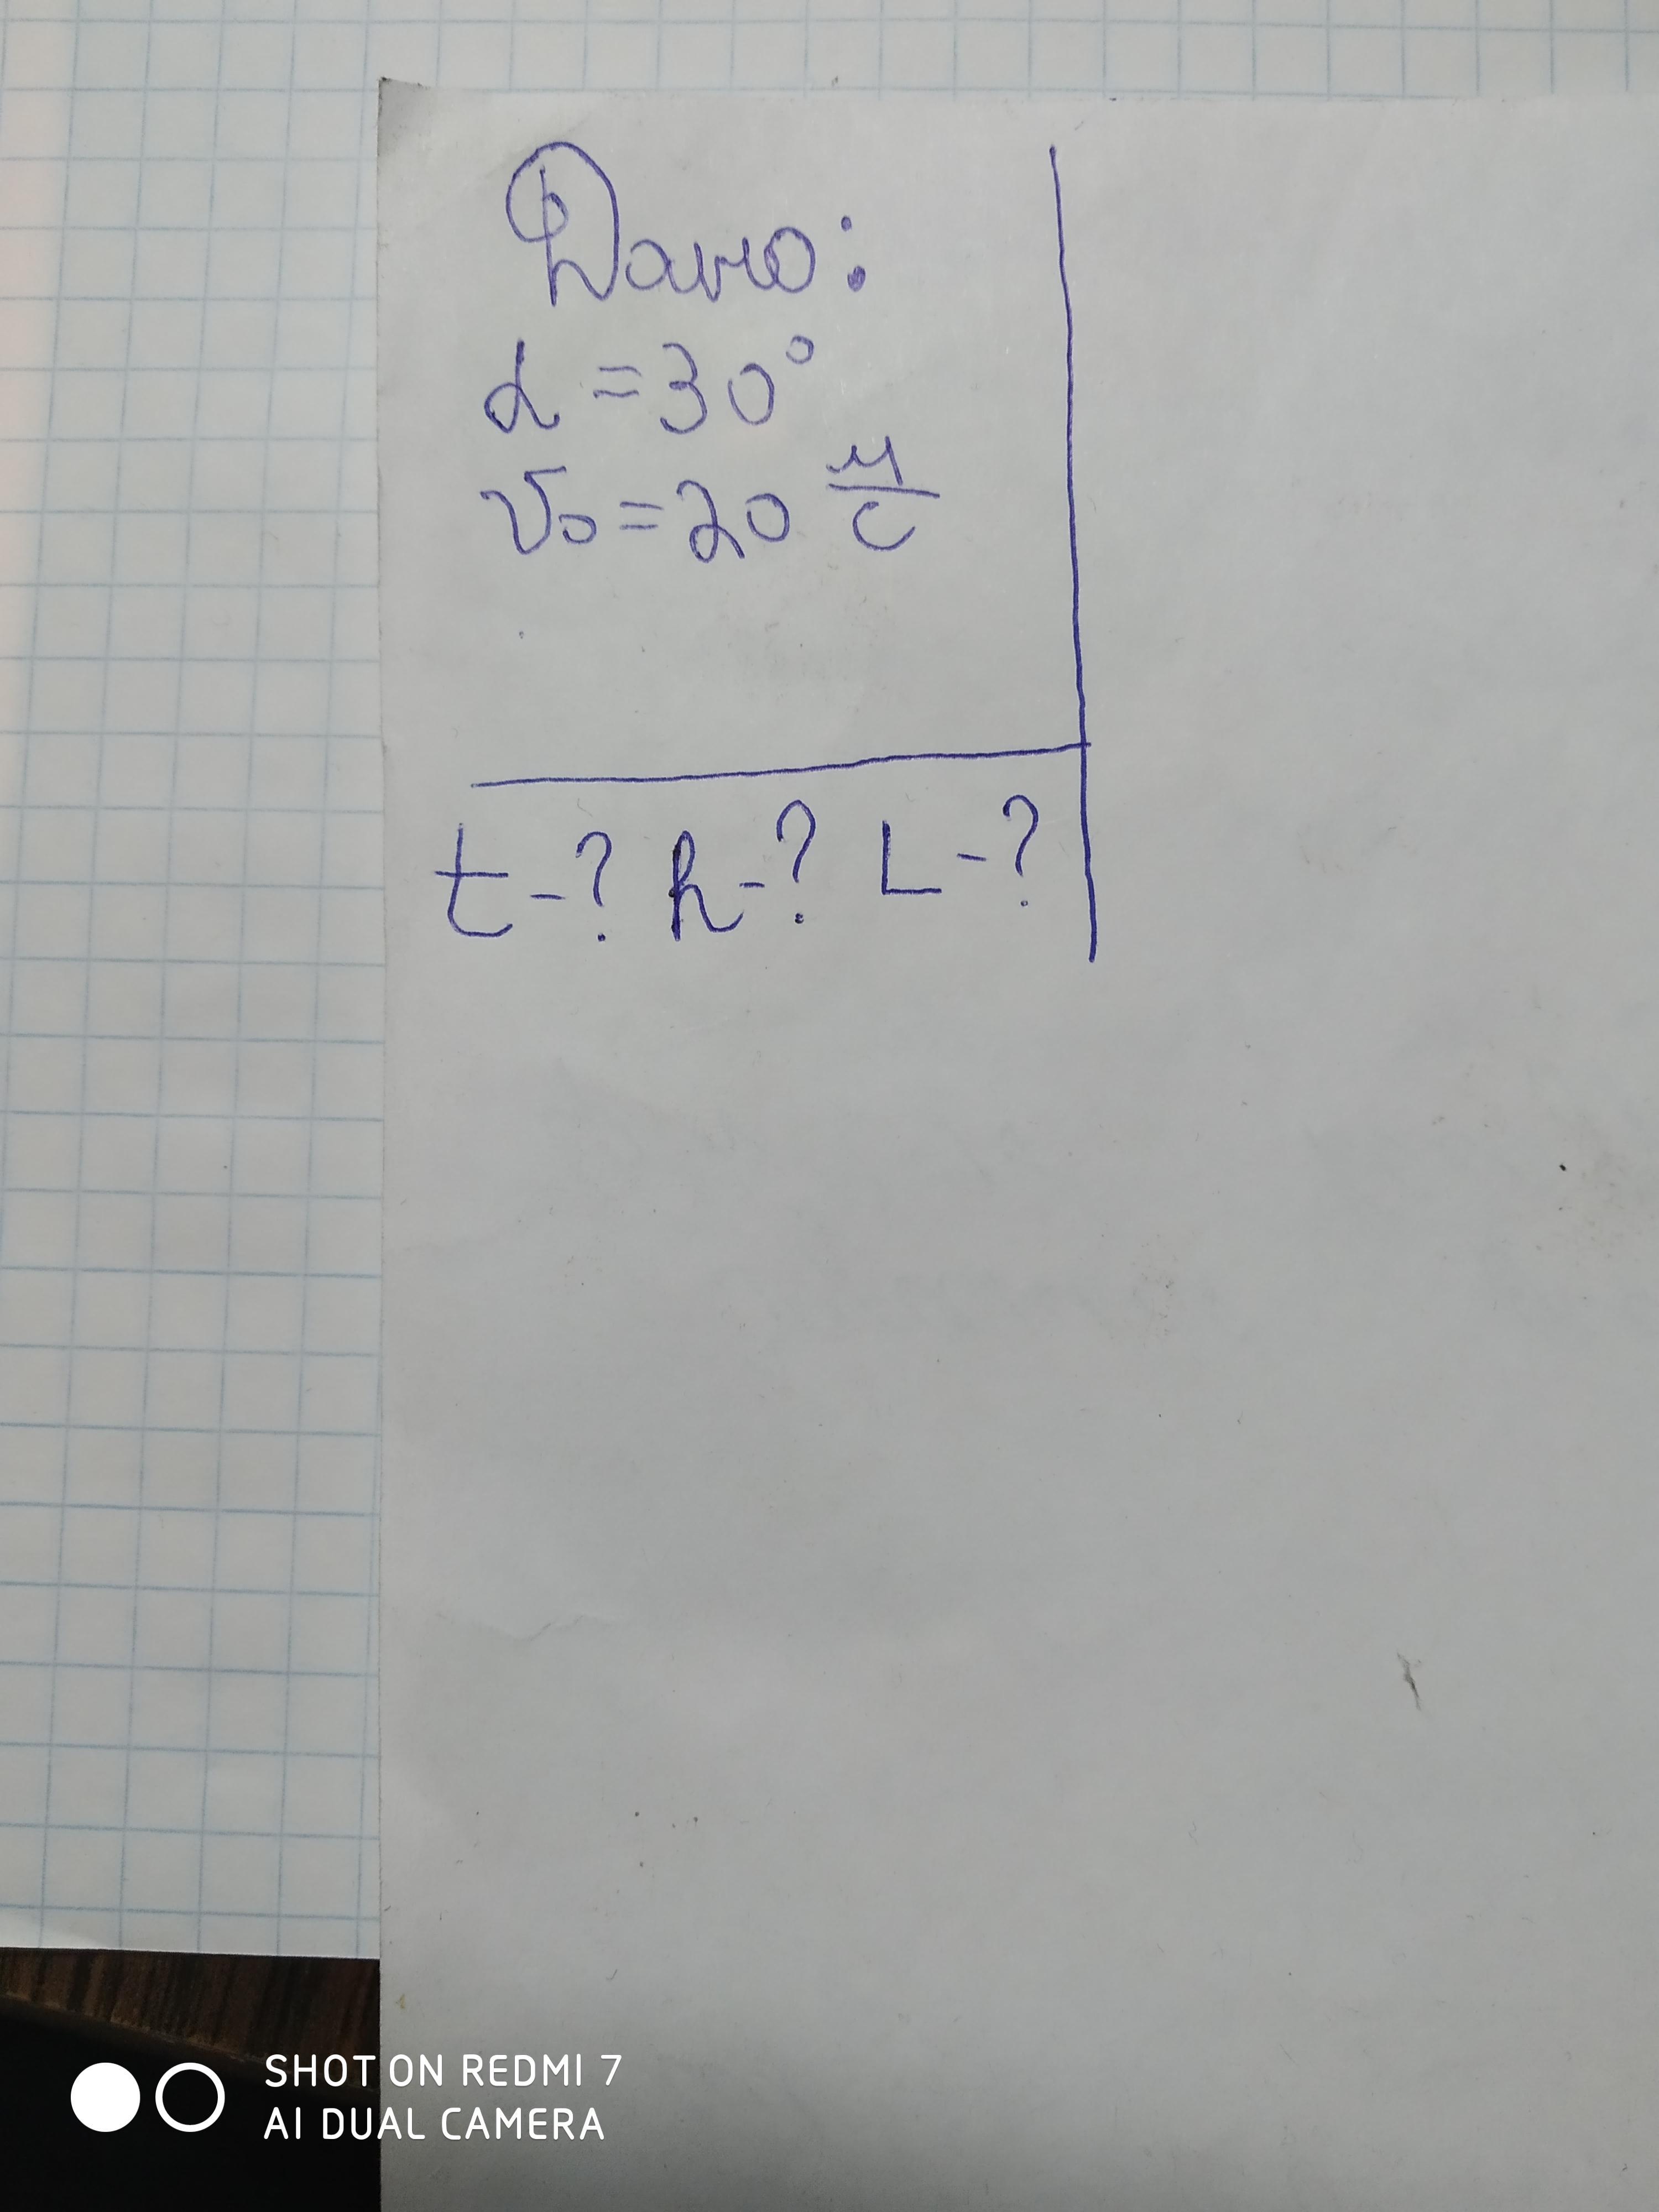 Дано:
α = 30°
v₀ = 20 м/с
t - ? h - ? L - ?
SHOT ON REDMI 7
AI DUAL CAMERA